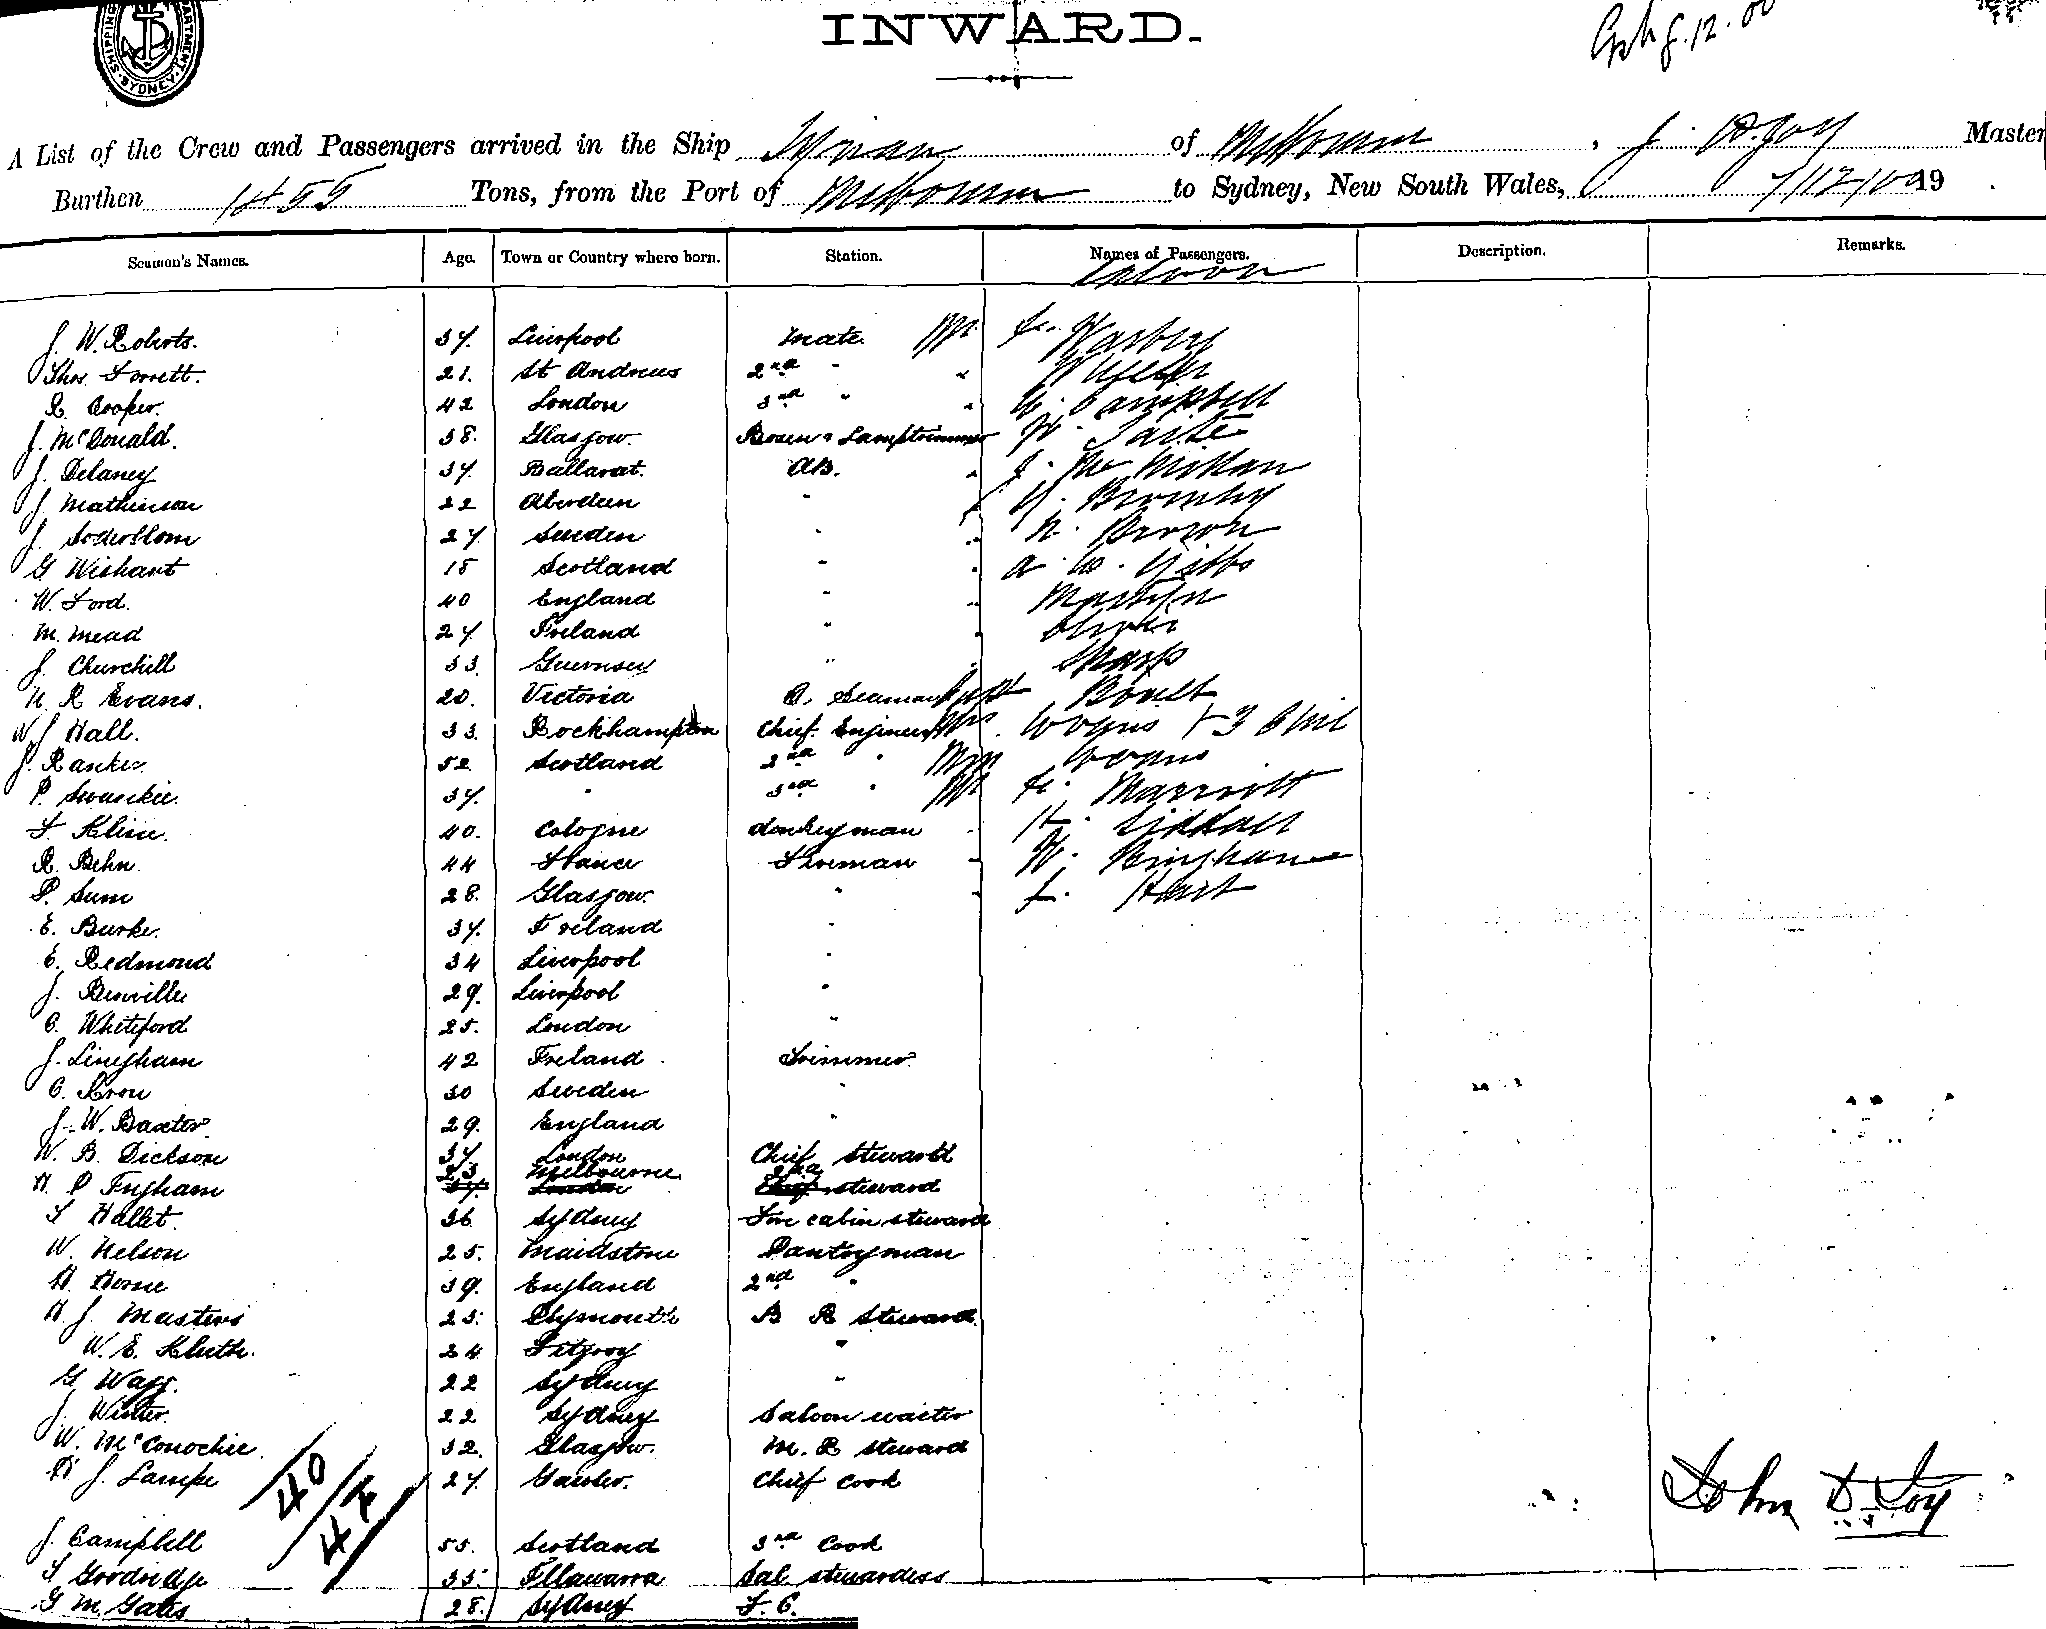 INWARD.
A List of the Crew and Passengers arrived in the Ship Tyrian of Melbourne, J. D. Joy Master
Burthen 1455 Tons, from the Port of Melbourne to Sydney, New South Wales, 7/12/00 19 .
Seamen's Names. Age. Town or Country where born. Station. Names of Passengers. Description. Remarks.
Saloon
J. W. Roberts. 37. Liverpool Mate. Mr.
Thos. 21. St Andrews 2nd "
R. Cooper. 42 London 3rd " " G. Campbell
J. McDonald. 38. Glasgow. Bosun & Lamptrimmer W. Taite
J. Delaney 37. Ballarat. AB. " J. McMillan
J. Mathinson 22 Aberdeen " Bromby
J. Soderblom 27 Sweden " " N. Brown
G Wishart 18 Scotland " " A. W. Gibbs
W. Ford. 40 England " " Martyn
M. Mead 27 Ireland " " Oliver
J. Churchill 33. Guernsey " " Sharp
N. R Evans. 20. Victoria O. Seaman Capt Boult
W J Hall. 33. Rockhampton Chief Engineer Mrs. + 3 Chil
J. Rankin. 52. Scotland 2nd "
P. Swankie. 37. " 3rd " Mr Marriott
F. Kline. 40. Cologne Donkeyman " H. Siddall
R. Behn. 44 France Fireman " W. Bingham
P. Sum 28. Glasgow. " " Hart
E. Burke. 37. Ireland "
E. Redmond 34 Liverpool "
J. Benville 29. Liverpool "
C. Whiteford 25. London "
J. Lingham 42 Ireland Trimmer
C. Kron 30 Sweden "
J. W. Baxter. 29. England "
W. B. Dickson 37. London Chief steward
23. Melbourne 2nd
H P Ingham 37. London Chief steward
Hallet. 36 Sydney Fore cabin steward
W. Nelson 25. Maidstone Pantryman
H. Horne 39. England 2nd "
H J. Masters 25. Plymouth B R Steward
W. E. Kluthe. 24 Fitzroy "
G Wagg. 22 Sydney "
J. Winter. 22 Sydney Saloon waiter
W. McConochie. 32. Glasgow. M. R steward
H J. Lampe 27. Gawler. Chief Cook
40
John D Joy
J. Campbell 55. Scotland 3rd Cook
Goodridge 35. Illawarra Sal stewardess
G M. Gates 28. Sydney F. C.